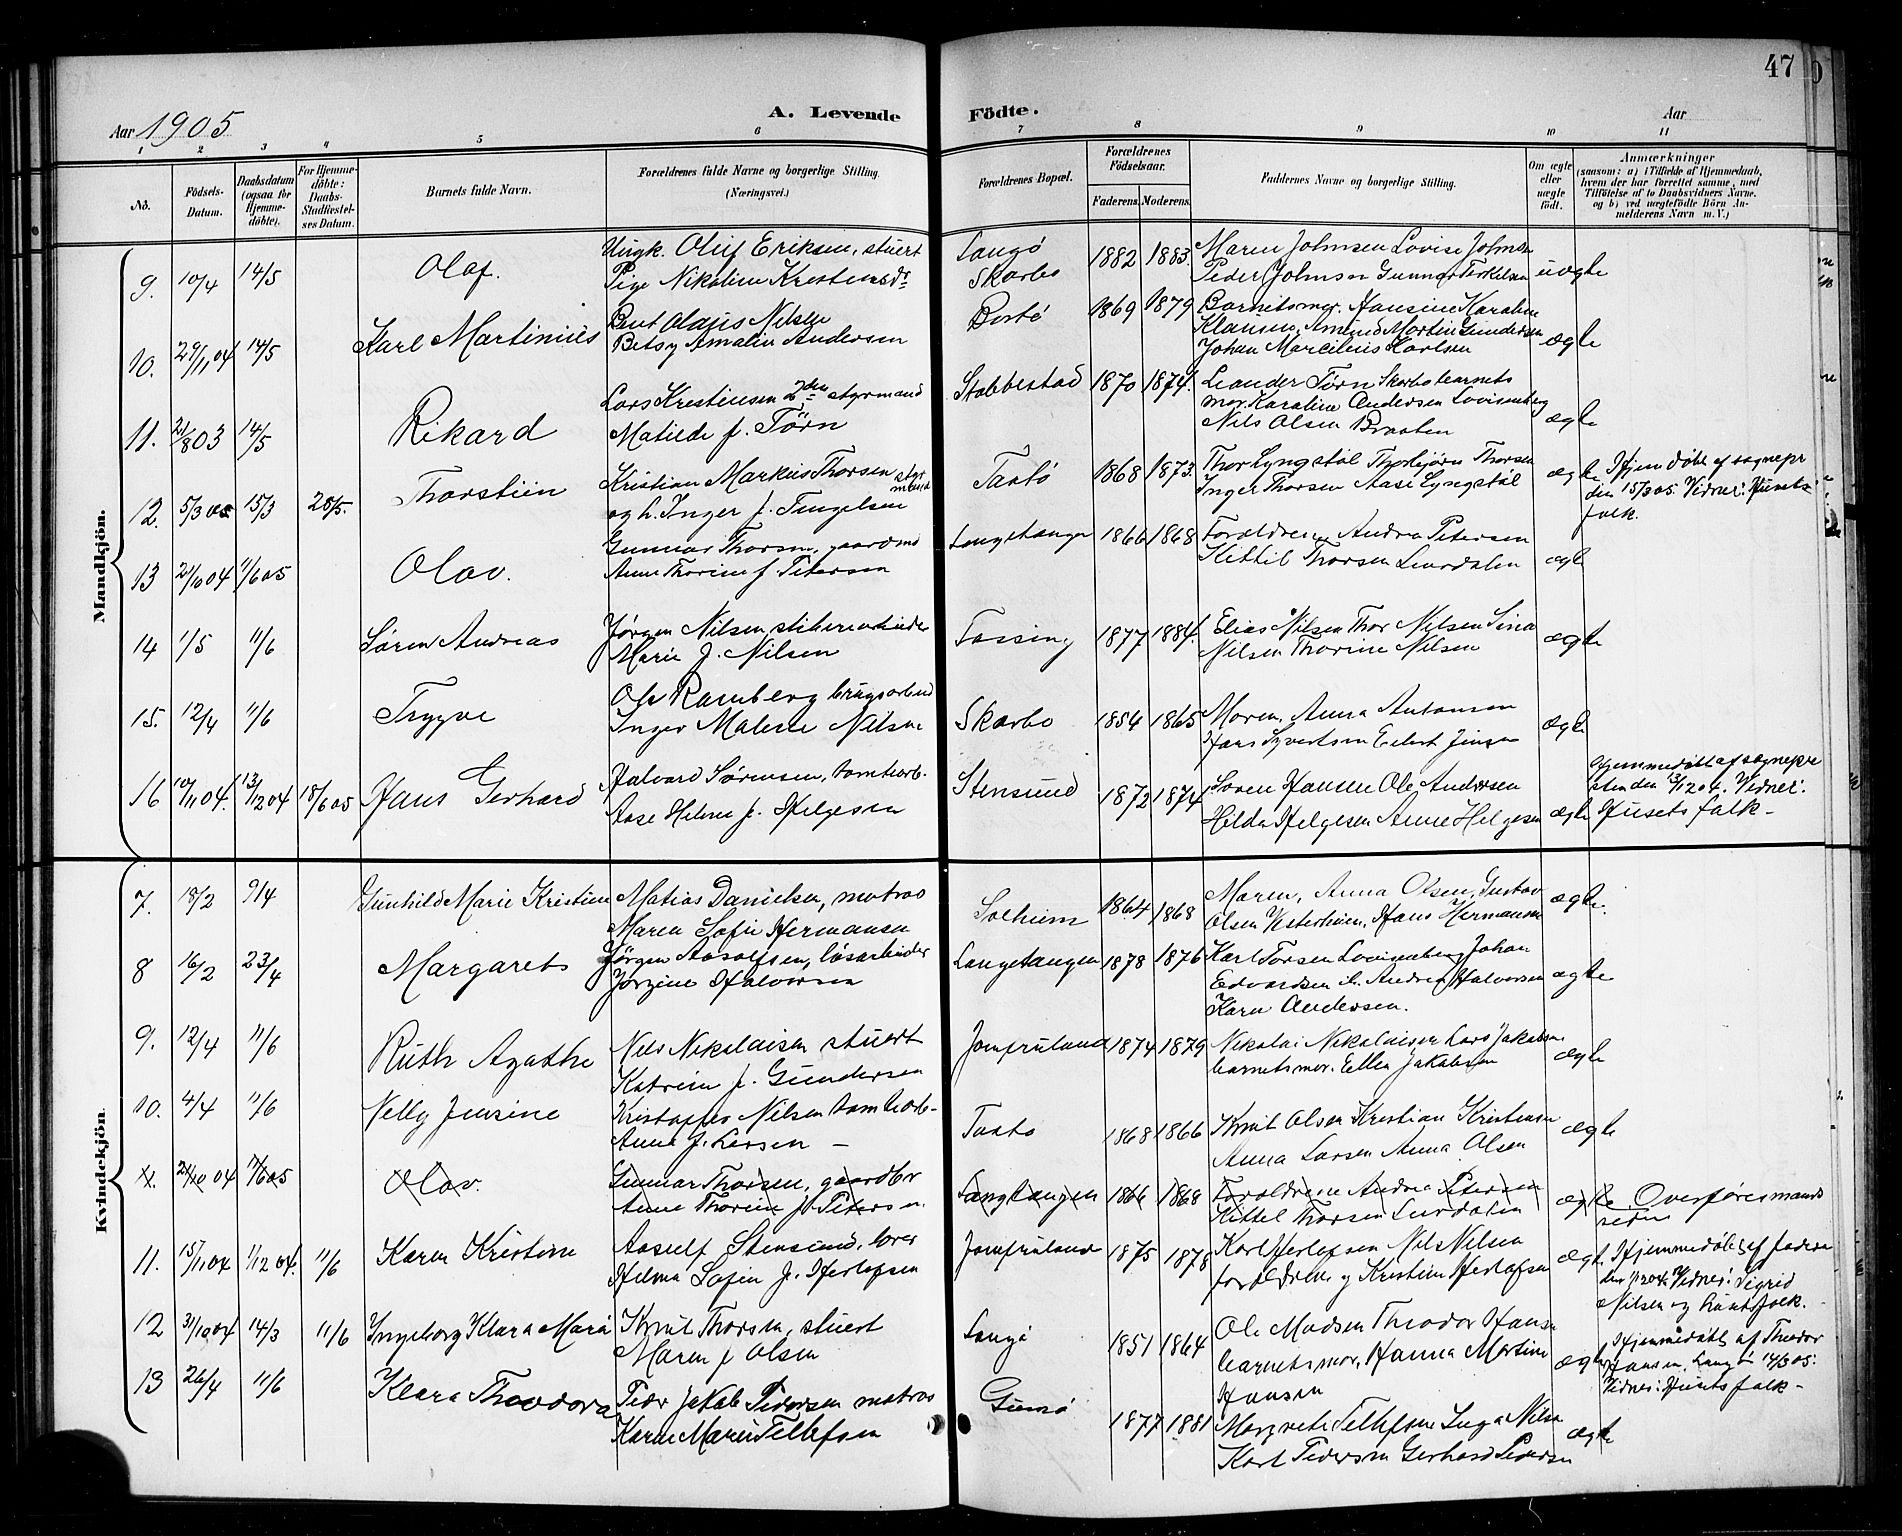 47
Aar 1905
A. Levende
Födte.
Aar
1 2 3 4 5 6 7 8 9 10 11
No.
Födsels-
Datum.
Daabsdatum
(ogsaa for
Hjemme-
döbte).
For Hjemme-
döbte:
Daabs-
Stadfæstel-
ses Datum.
Barnets fulde Navn.
Forældrenes fulde Navne og borgerlige Stilling.
(Næringsvei.)
Forældrenes Bopæl.
Forældrenes
Födselsaar.
Faderens.
Moderens.
Faddernes Navne og borgerlige Stilling.
Om ægte
eller
uægte
födt.
Anmærkninger
(saasom: a) i Tilfælde af Hjemmedaab,
hvem der har forrettet samme, med
Tilföielse af to Daabsvidners Navne.
og b) ved uægtefödte Börn An-
melderens Navn m. V.)
Mandkjön.
9. 10/4 14/5 Olaf. Ungk. Oluf Eriksen, stuert Langö 1882 1883. Maren Johnsen Lovise Johnsen uægte
Pige Nikoline Kristensdr Skarbo Peder Johnsen Gunnar Terkelsen
10. 29/11 04 14/5 Karl Martinius Bent Olaus Nilsen Bortö 1869 1879 Barnets mor. Hansine Karoline
Betsy Amalie Andersen Klausen, Amund Martin Gundersen ægte
Johan Marcelius Karlsen
11. 21/8 03 14/5 Rikard Lars Kristensen 2den styrmand Stabbestad 1870 1874. Leander Törn Skarbo barnets
Matilde f. Törn mor. Karoline Andersen Lovisenberg ægte
Nils Olsen Braaten
12. 5/3 05 15/3 28/5. Thorstein Kristian Markus Thorsen styrmand Taatö 1868 1873. Thor Lyngstöl Thorbjörn Thorsen ægte Hjemdöbt af sognepr
og h. Inger f. Tengelsen Inger Thorsen Aase Lyngstöl den 15/3 05. Vidner: Husets
folk.
13 21/10 04 11/6 05 Olav. Gunnar Thorsen, gaardmd Langetangen 1866 1868 Forældrene Andrea Petersen
Anne Thorine f. Petersen Kittil Thorsen Lurdalen ægte
14 1/5 11/6 Sören Andreas Jörgen Nilsen, stenarbeider 1877 1884. Elias Nilsen Thor Nilsen Sina ægte
Marie f. Nilsen Nilsen Thorine Nilsen
15. 12/4 11/6 Trygve Ole Ramberg brugsarbeid Skarbo 1854 1865 Moren. Anna Antonsen
Inger Malene Nilsen Hans Syvertsen Eilert Jensen ægte
16 10/11 04. 13/12 04 18/6 05 Hans Gerhard Halvord Sörensen, tomtearb. Stensund 1872 1874 Soren Hansen Ole Andersen Hjemmedöbt af sognepre
Aase Helene f. Helgesen Hilda Helgesen Anne Helgesen ægte sten den 13/12 04. Vidner:
Husets folk -
Kvindekjön.
7. 18/2 9/4 Gunhild Marie Kristine Matias Danielsen, matros Solheim 1864 1868 Maren, Anna Olsen, Gustav ægte.
Maren Sofie Hermansen Olsen Vesterheim, Hans Hermansen
8 16/2 23/4 Margarets Jörgen Aasolfsen, lösarbeider Langetangen 1878 1876 Karl Torsen Lovisenberg Johan
Jörgine Halvorsen Edvardsen Andrea Halvorsen ægte
Karen Andersen.
9. 12/4 11/6 Ruth Agathe Nels Nikolaisen stuert Jomfruland 1874 1879 Nikolai Nikolaisen Lars Jakobsen
Katrine f. Gundersen barnets mor. Ellen Jakobsen ægte
10. 4/4 11/6 Nelly Jensine Kristoffer Nilsen tomtearb- Taato 1868 1866 Knut Olsen Kristian Kristensen ægte
Anne f. Larsen - Anna Larsen Anna Olsen
11. 21/10 04 11/6 05 Olav. Gunnar Thorsen, gaardbr Langtangen 1866 1868 Foroldrene Andrea Petersen ægte Overföres mands
Anne Thorine f. Petersen Kittel Thorsen Lurdalen siden
11. 15/11 04 1/12 04. 11/6 Karen Kristine Aasulf Stensund, lorer Jomfruland 1875 1878 Karl Herlofsen Nils Nilsen ægt. Hjemmedöbt af faderen
Helma Sofie f. Herlofsen foroldrene og Kristine Herlofsen den 1/12 04. Vidner: Sigrid
Nilsen og husets folk.
12 31/10 04 14/3 11/6 Ingeborg Klara Marie Knut Thorsen, stuert Langö 1851 1864 Ole Madsen Theodor Hansen
Maren f Olsen barnets mor, Hanna Martine ægte Hjemmedöbt af Theodor
Hansen Hansen, Langö 14/3 05.
Vidner: Husets folk -
13 26/4 11/6 Klara Theodora Peder Jakob Pedersen matros Gumö 1877 1881 Margrete Tellefsen Inga Nilsen ægte
Karen Marie Tellefsen Karl Pedersen Gerhard Pedersen